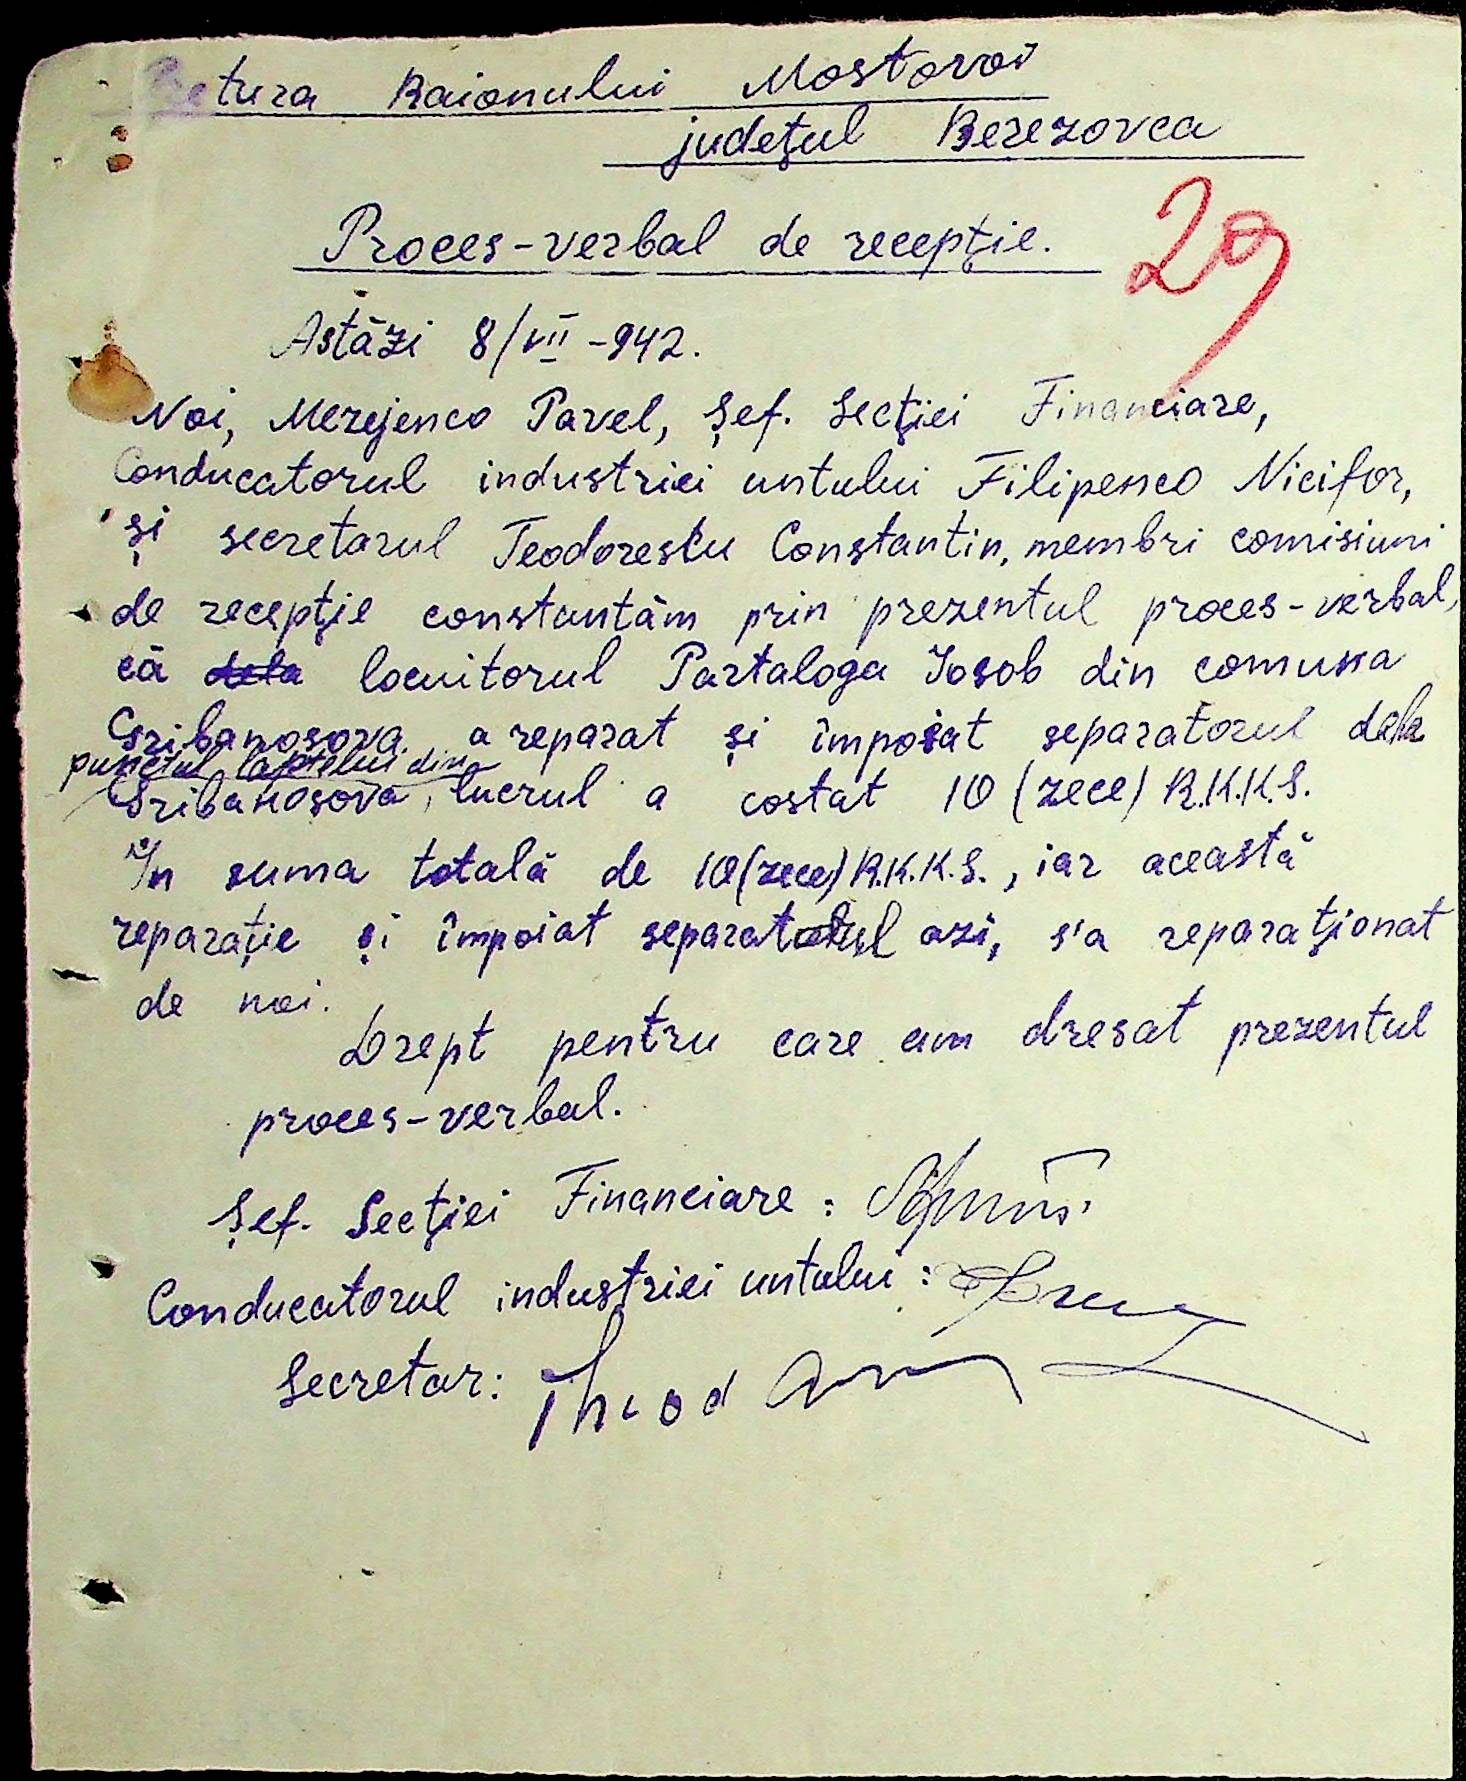 Pretura Raionului Mostovoi
județul Berezovca
29
Proces-verbal de recepţie.
Astăzi 8/VII-942.
Noi, Merejenco Pavel, Şef. Secţiei Financiare,
Conducatorul industriei untului Filipenco Nicifor,
și secretarul Teodorescu Constantin, membri comisiuni
de recepţie constantăm prin prezentul proces-verbal,
că dela locuitorul Partaloga Iosob din comuna
Gribanosova a reparat și împoiat separatorul dela
punctul laptelui din
Gribanosova, lucrul a costat 10 (zece) R.K.K.S.
În suma totală de 10 (zece) R.K.K.S., iar această
reparație și împoiat azi, s'a reparaţionat
de noi.
Drept pentru care am dresat prezentul
proces-verbal.
Şef. Secţiei Financiare:
Conducatorul industriei untului:
Secretar: Theod